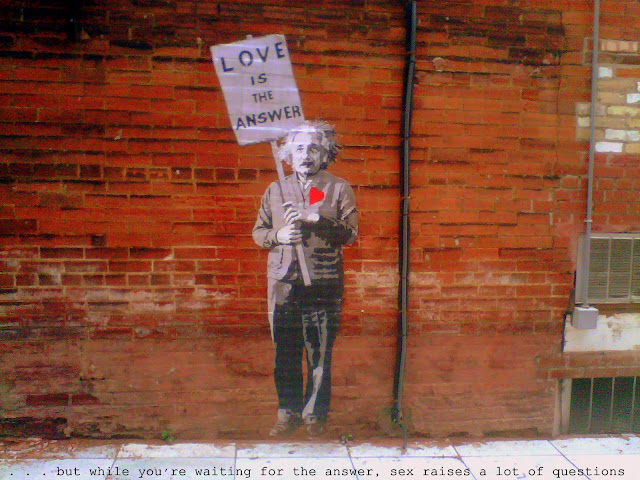 LOVE
IS
THE
ANSWER
. . . but while you're waiting for the answer, sex raises a lot of questions